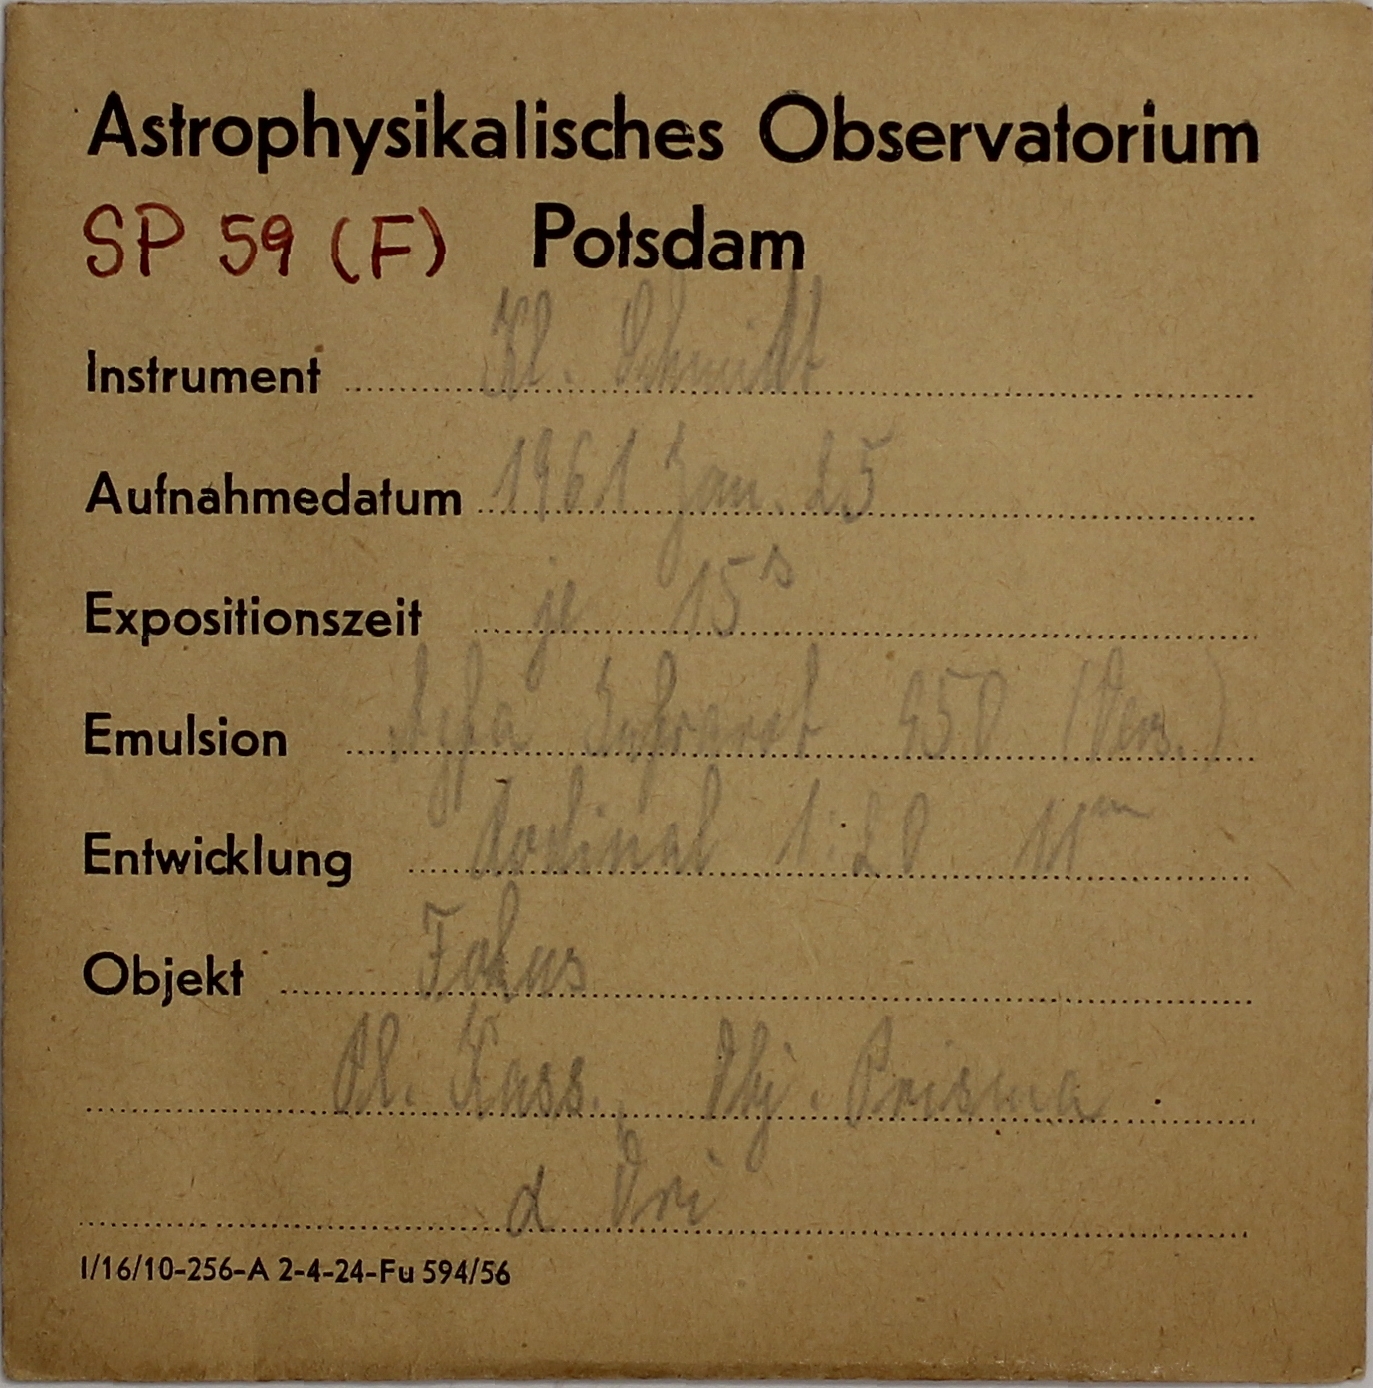 Astrophysikalisches Observatorium
SP 59 (F) Potsdam
Instrument Kl. Schmidt
Aufnahmedatum 1961 Jan. 25
Expositionszeit je 15s
Emulsion Agfa 950 (Vers.)
Entwicklung Rodinal 1:20 11m
Objekt Fokus
Kl. Kass., Obj. Prisma
α Ori
I/16/10-256-A 2-4-24-Fu 594/56